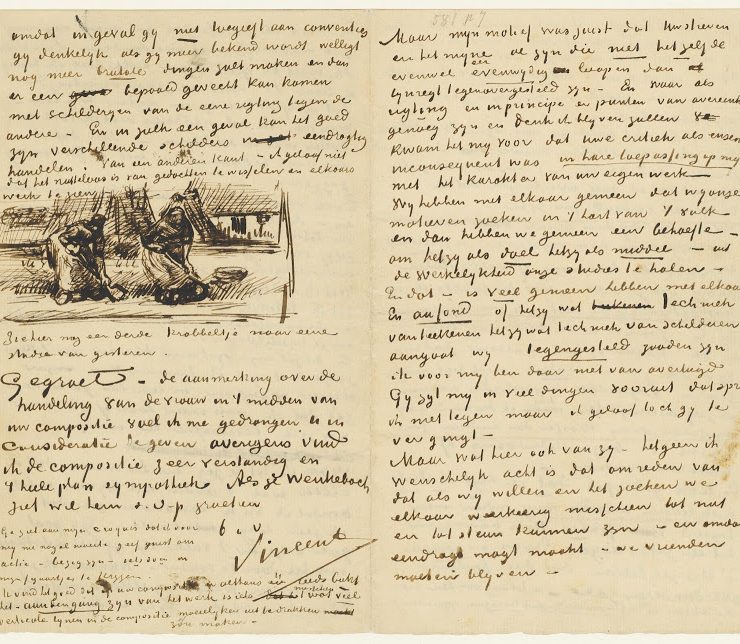 omdat in geval gy niet toegeeft aan conventies
gy denkelyk als gy meer bekend wordt welligt
nog meer brutale dingen zult maken en dan
er een bepaald gevecht kan komen
met schilderyen van de eene rigting tegen de
andere – En in zulk een geval kan het goed
zyn verschillende schilders eendragtig
handelen Van een anderen kant – ik geloof niet
dat het nutteloos is van gedachten te wisselen en elkaars
werk te zien
Ziehier nog een derde krabbeltje naar eene
studie van gisteren.
Gegroet – de aanmerking over de
handeling van de vrouw in 't midden van
uw compositie voel ik me gedrongen U in
consideratie te geven overigens vind
ik de compositie zeer verstandig en
't heele plan sympathiek Als ge Wenkebach
ziet wil hem s.v.p groeten
b. a. v
Vincent
58a R 7
Maar myn motief was juist dat Uw streven
en het myne al zyn die niet hetzelfde
evenwel eer evenwydig loopen dan
lynregt tegenovergesteld zyn – En waar als
rigting en in principe er punten van overeenkomst
genoeg zyn en denk ik blyven zullen
kwam het my voor dat uwe critiek als eisen
inconsequent was in hare toepassing op myn
met het karakter van uw eigen werk –
Wy hebben met elkaar gemeen dat wy onze
motieven zoeken in 't hart van 't volk –
en dan hebben we gemeen een behoefte –
om hetzy als doel hetzy als middel – uit
de werkelykheid onze studies te halen –
En dat – is veel gemeen hebben met elkaar
En au fond of hetzy wat techniek
van teekenen hetzy wat techniek van schilderen
aangaat wy tegengesteld zouden zyn
ik voor my ben daar niet van overtuigd
Gy zyt my in veel dingen vooruit dat spreek
ik niet tegen maar ik geloof toch gy te
ver gingt –
Maar wat hier ook van zy – hetgeen ik
wenschelyk acht is dat om reden van
dat als wy willen en het zoeken we
elkaar weerkeerig misschien tot nut
en tot steun kunnen zyn – en omdat
eendragt magt maakt – we vrienden
moeten blyven –